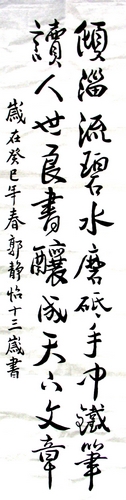 傾淄流碧水磨砥手中鐵筆
讀人世良書釀成天下文章
歲在癸巳年春郭靜怡十三歲書